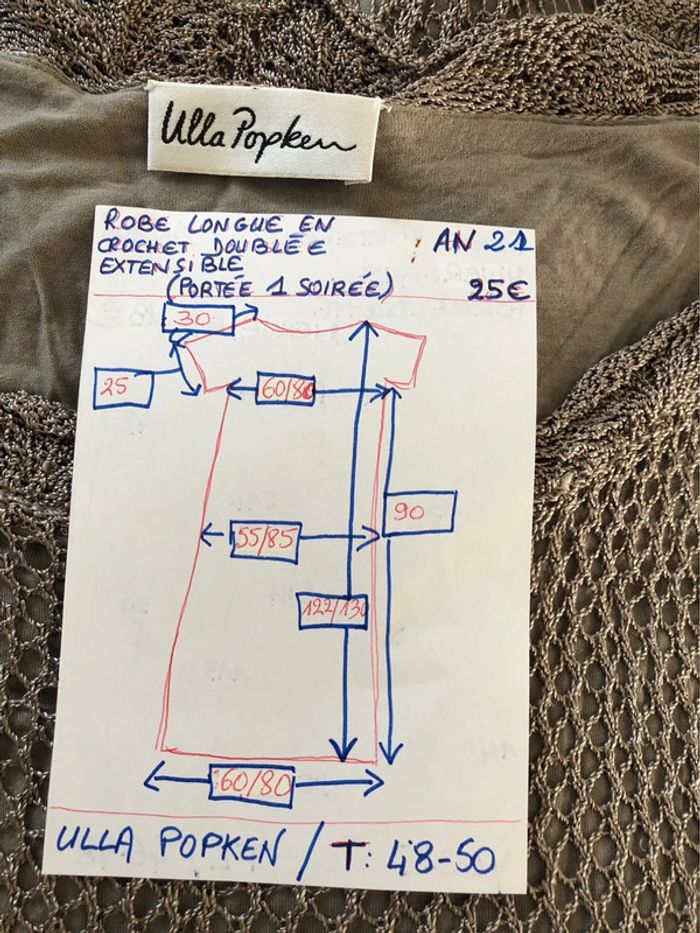 Ulla Popken
ROBE LONGUE EN
CROCHET DOUBLÉE
EXTENSIBLE
(PORTÉE 1 SOIRÉE)
AN 21
25€
30
25
60/80
55/85
90
122/130
60/80
ULLA POPKEN / T: 48-50